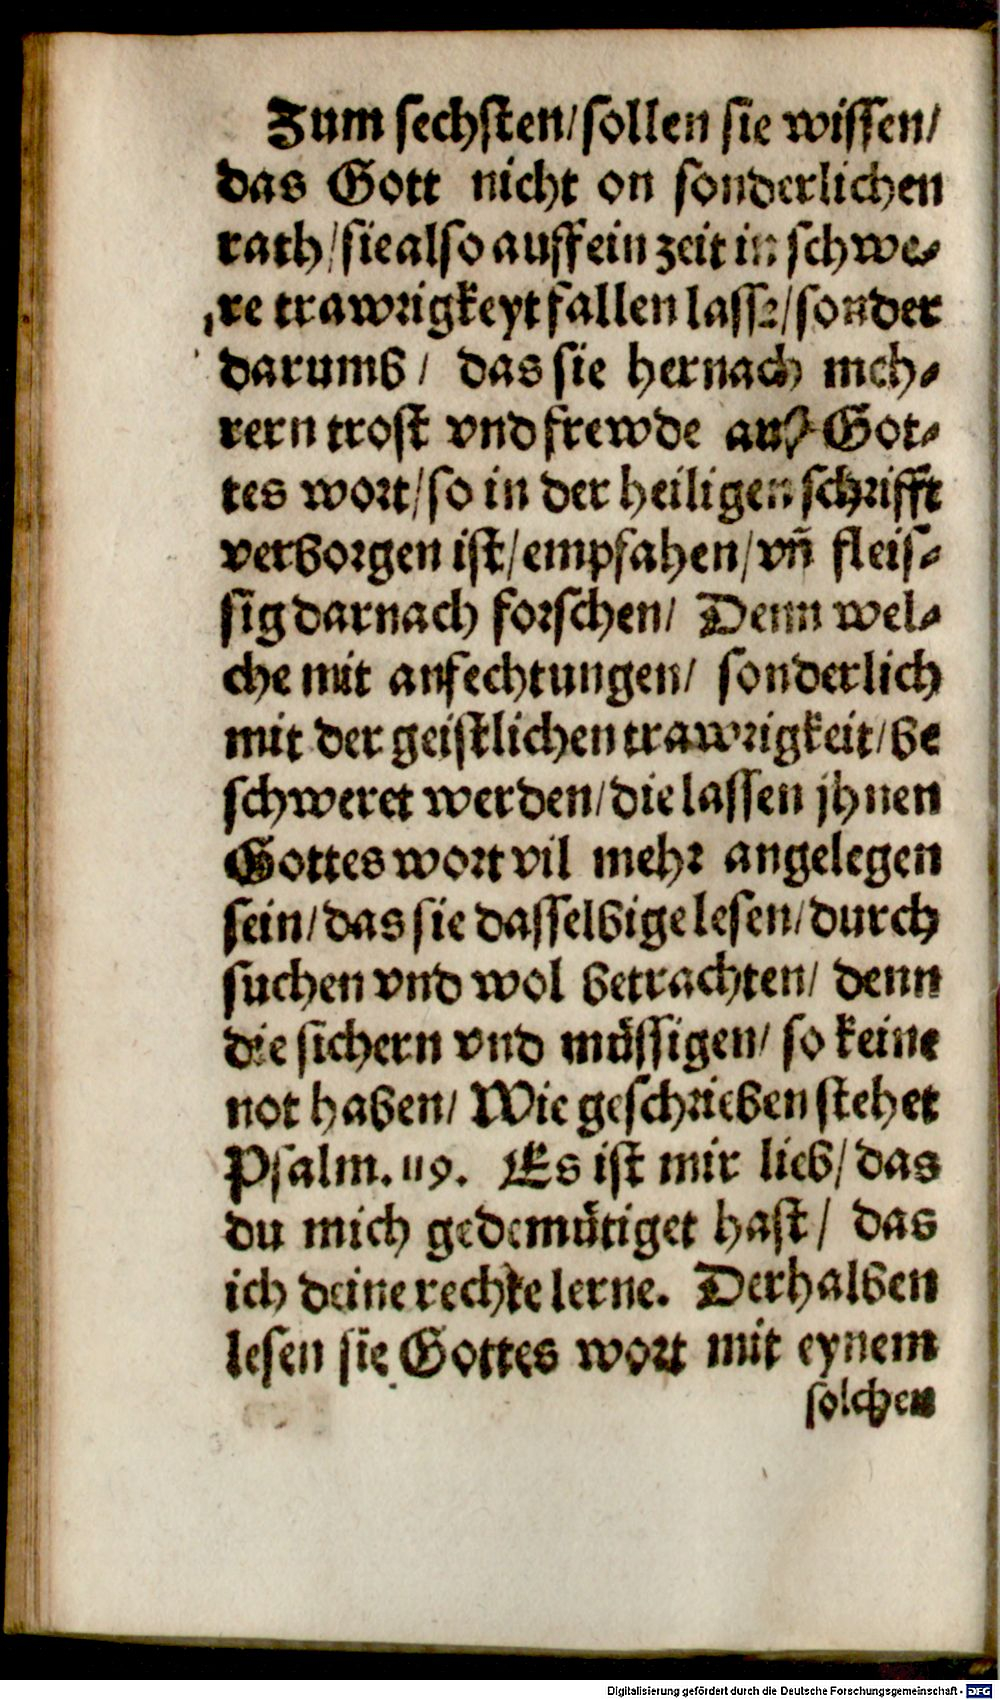 Zum sechsten/ sollen sie wissen/
das Gott nicht on sonderlichen
rath/ sie also auff ein zeit in schwe-
re trawrigkeyt fallen lasse/ sonder
darumb/ das sie hernach meh-
rern trost vnd frewde auß Got-
tes wort/ so in der heiligen schrifft
verborgen ist/ empfahen/ vñ fleis-
sig darnach forschen/ Denn wel-
che mit anfechtungen/ sonderlich
mit der geistlichen trawrigkeit/ be
schweret werden/ die lassen jhnen
Gottes wort vil mehr angelegen
sein/ das sie dasselbige lesen/ durch
suchen vnd wol betrachten/ denn
die sichern vnd müssigen/ so keine
not haben/ Wie geschrieben stehet
Psalm. 119. Es ist mir lieb/ das
du mich gedemütiget hast/ das
ich deine rechte lerne. Derhalben
lesen sie Gottes wort mit eynem
solchen
Digitalisierung gefördert durch die Deutsche Forschungsgemeinschaft - DFG